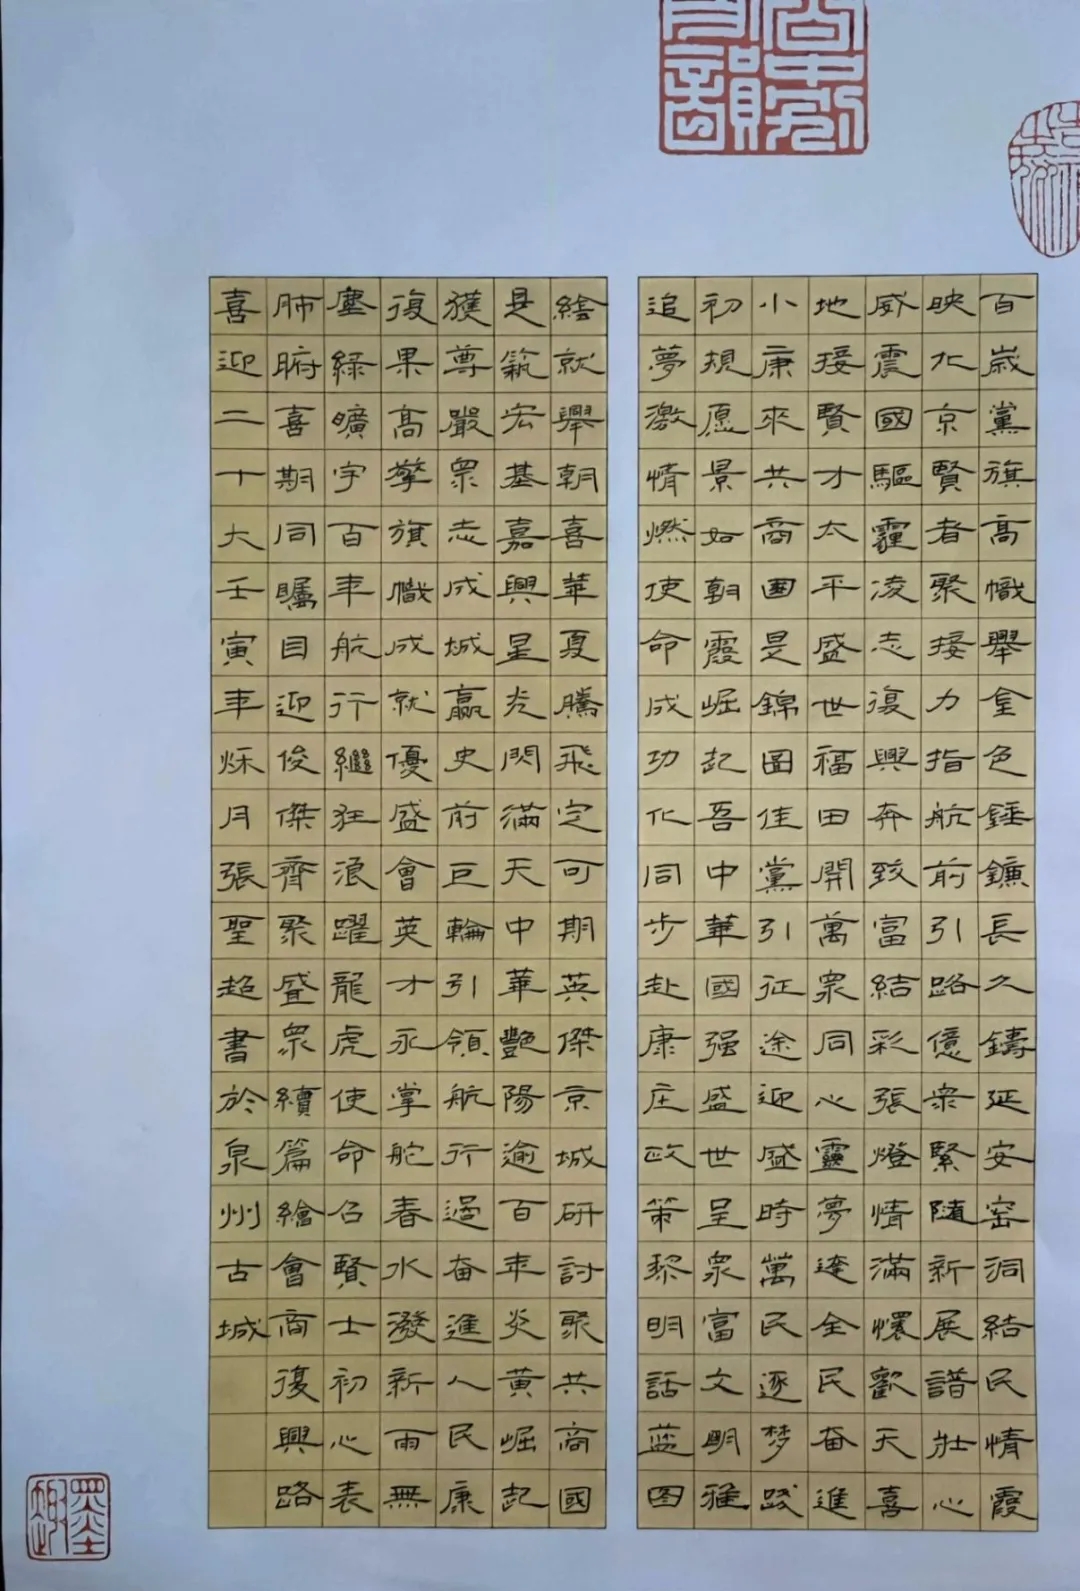 百歲黨旗高幟舉金色錘鐮長久鑄延安窑洞結民情霞
映九京賢者聚接力指航前引路億衆緊隨新展譜壯心
威震國驅霾凌志復興奔致富結彩張燈情滿懷歡天喜
地接賢才太平盛世福田開萬衆同心靈夢達全民奋進
小康來共商國是錦圖佳黨引征途迎盛時萬民逐梦踐
初規愿景如朝霞崛起吾中華國强盛世呈衆富文明雅
追夢激情燃使命成功化同步赴康庄政策黎明話蓝图
繪就舉朝喜華夏騰飛定可期英傑京城研討聚共商國
是籲宏基嘉興星光閃滿天中華艷陽逾百年炎黄崛起
獲尊嚴衆志成城贏史前巨輪引領航行過奋進人民康
復果高擎旗幟成就優盛會英才永掌舵春水潑新雨無
塵緑曠宇百年航行繼狂浪躍龍虎使命召賢士初心表
肺腑喜期同矚目迎俊傑齊聚盛衆續篇繪會商復興路
喜迎二十大壬寅年秌月張聖超書於泉州古城
墨趣